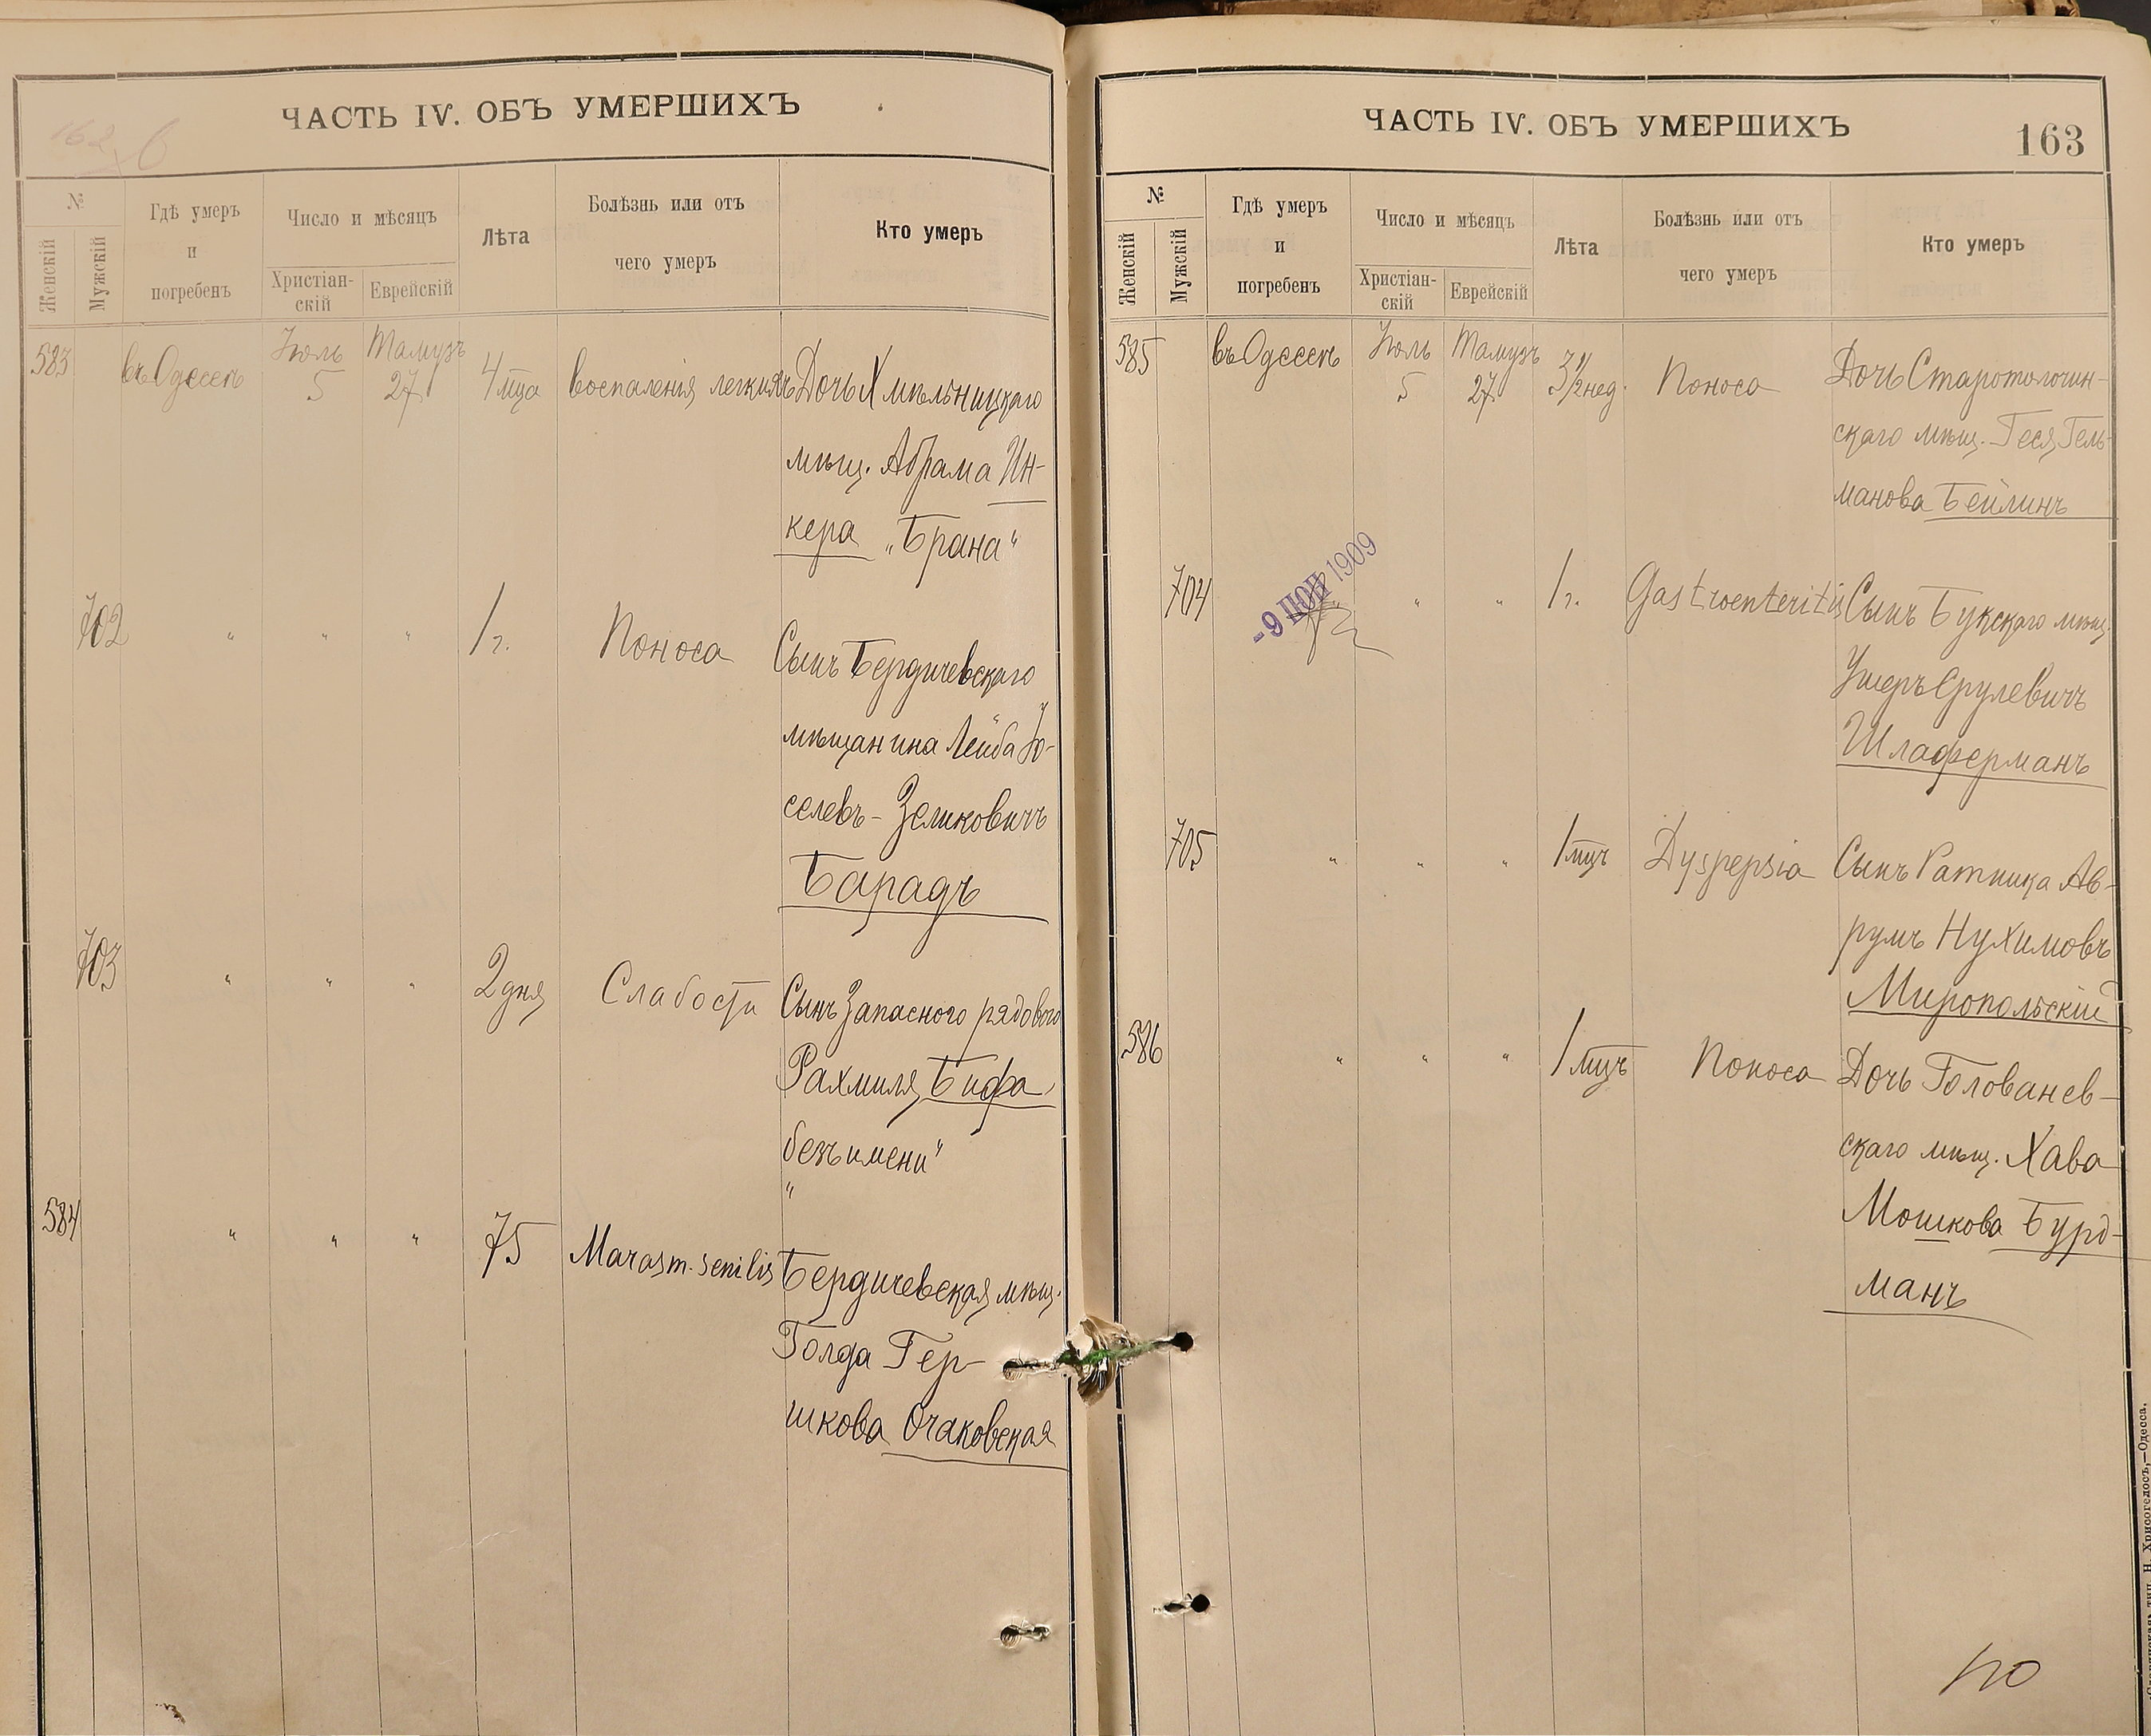 ЧАСТЬ IV. ОБЪ УМЕРШИХЪ
№
Женскій
Мужскій
Гдѣ умеръ
и
погребенъ
Число и мѣсяцъ
Христіан-
скій
Еврейскій
Лѣта
Болѣзнь или отъ
чего умеръ
Кто умеръ
583 въ Одессѣ Іюль 5 Тамузъ 27 4 мца воспаленія легкихъ Дочь Хмѣльницкаго
мѣщ. Абрама Ин-
кера „Брана“
702 " " " 1 г. Поноса Сынъ Бердичевскаго
мѣщанина Лейба Іо-
селевъ-Зеликовичъ
Барадъ
703 " " " 2 дня Слабости Сынъ Запасного рядового
Рахмиля Бифа
„безъ имени“
584 " " " 75 Marasm. senilis Бердичевская мѣщ.
Голда Гер-
шкова Очаковская
ЧАСТЬ IV. ОБЪ УМЕРШИХЪ
163
№
Женскій
Мужскій
Гдѣ умеръ
и
погребенъ
Число и мѣсяцъ
Христіан-
скій
Еврейскій
Лѣта
Болѣзнь или отъ
чего умеръ
Кто умеръ
585 въ Одессѣ Іюль 5 Тамузъ 27 3 1/2 нед. Поноса Дочь Старотолочин-
скаго мѣщ. Геся Гель-
манова Бейлинъ
-9 ІЮЛ 1909
704 " " " 1 г. Gastroenteritis Сынъ Букскаго мѣщ.
Ушеръ Срулевичъ
Шлаферманъ
705 " " " 1 мцъ Dyspepsia Сынъ Ратника Ав-
румъ Нухимовъ
Миропольскій
586 " " " 1 мцъ Поноса Дочь Голованев-
скаго мѣщ. Хава
Мошкова Бурд-
манъ
Н. Хрисогелосъ,—Одесса.